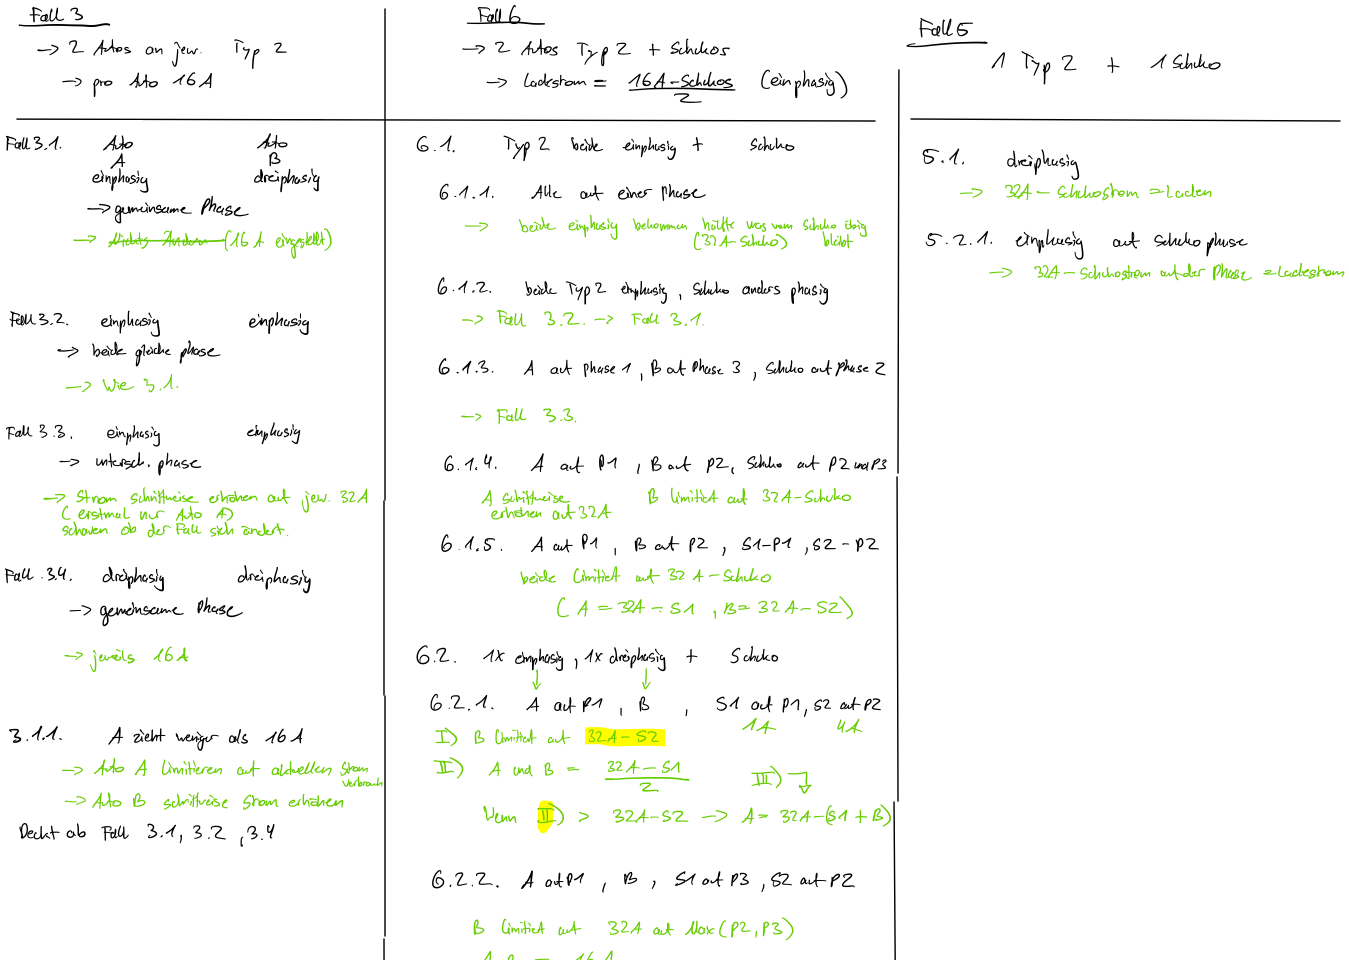 Fall 3
→ 2 Autos an jew. Typ 2
→ pro Auto 16A
Fall 3.1. Auto Auto
A B
einphasig dreiphasig
→ gemeinsame Phase
→ Nichts Ändern (16A eingestellt)
Fall 3.2. einphasig einphasig
→ beide gleiche phase
→ Wie 3.1.
Fall 3.3. einphasig einphasig
→ untersch. phase
→ Strom schrittweise erhöhen auf jew. 32A
(erstmal nur Auto A)
schauen ob der Fall sich ändert.
Fall 3.4. dreiphasig dreiphasig
→ gemeinsame Phase
→ jeweils 16A
3.1.1. A zieht weniger als 16A
→ Auto A limitieren auf aktuellen Strom
verbrauch
→ Auto B schrittweise Strom erhöhen
Deckt ab Fall 3.1, 3.2, 3.4
Fall 6
→ 2 Autos Typ 2 + Schukos
→ Ladestrom = 16A - Schukos (einphasig)
2
6.1. Typ 2 beide einphasig + Schuko
6.1.1. Alle auf einer Phase
→ beide einphasig bekommen hälfte was vom Schuko übrig
(32A - Schuko) bleibt
6.1.2. beide Typ 2 einphasig, Schuko anders phasig
→ Fall 3.2. → Fall 3.1.
6.1.3. A auf phase 1, B auf Phase 3, Schuko auf phase 2
→ Fall 3.3.
6.1.4. A auf P1, B auf P2, Schuko auf P2 und P3
A schrittweise B limitiert auf 32A - Schuko
erhöhen auf 32A
6.1.5. A auf P1, B auf P2, S1-P1, S2-P2
beide limitiert auf 32A - Schuko
(A = 32A - S1, B = 32A - S2)
6.2. 1x einphasig, 1x dreiphasig + Schuko
6.2.1. A auf P1, B, S1 auf P1, S2 auf P2
1A 4A
I) B limitiert auf 32A - S2
II) A und B = 32A - S1 III)
2
Wenn II) > 32A - S2 → A = 32A - (S1 + B)
6.2.2. A auf P1, B, S1 auf P3, S2 auf P2
B limitiert auf 32A auf Max(P2, P3)
Fall 5
1 Typ 2 + 1 Schuko
5.1. dreiphasig
→ 32A - Schukostrom = Laden
5.2.1. einphasig auf Schukophase
→ 32A - Schukostrom auf der Phase = Ladestrom